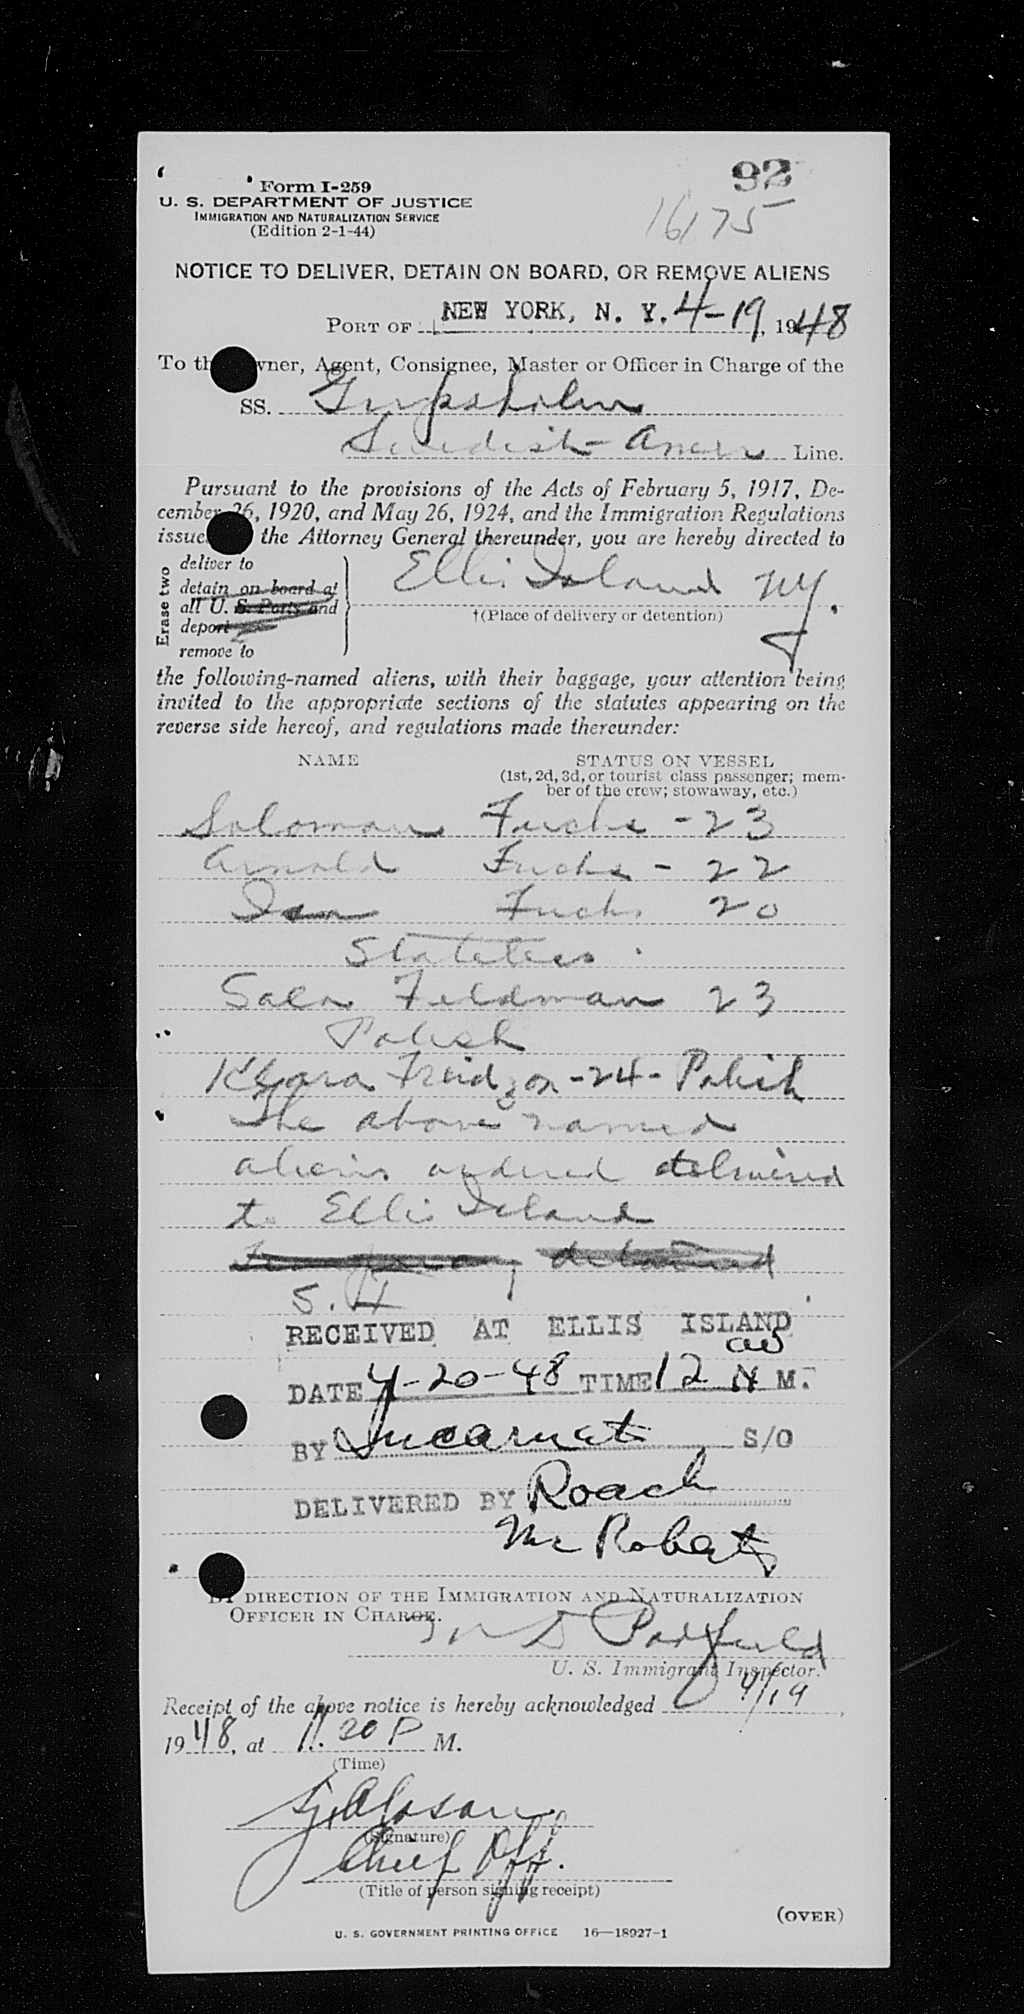 92
Form I-259
16175
U. S. DEPARTMENT OF JUSTICE
IMMIGRATION AND NATURALIZATION SERVICE
(Edition 2-1-44)
NOTICE TO DELIVER, DETAIN ON BOARD, OR REMOVE ALIENS
PORT OF NEW YORK, N. Y. 4-19, 1948
To th wner, Agent, Consignee, Master or Officer in Charge of the
SS. Gripsholm
Swedish-Amer Line.
Pursuant to the provisions of the Acts of February 5, 1917, De-
cember 26, 1920, and May 26, 1924, and the Immigration Regulations
issue the Attorney General thereunder, you are hereby directed to
Erase two
deliver to
detain on board at
all U. S. Ports and
deport
remove to
Ellis Island NY.
†(Place of delivery or detention)
the following-named aliens, with their baggage, your attention being
invited to the appropriate sections of the statutes appearing on the
reverse side hereof, and regulations made thereunder:
NAME STATUS ON VESSEL
(1st, 2d, 3d, or tourist class passenger; mem-
ber of the crew; stowaway, etc.)
Soloman Fuchs - 23
Arnold Fuchs - 22
Fuchs 20
Stateless
Sala Feldman 23
Polish
Klara Fridzon - 24 - Polish
The above named
aliens ordered delivered
to Ellis Island
detained
S. H
RECEIVED AT ELLIS ISLAND
DATE 4-20-48 TIME 12 N M.
BY Incarnato S/O
DELIVERED BY Roach
McRoberts
BY DIRECTION OF THE IMMIGRATION AND NATURALIZATION
OFFICER IN CHARGE.
U. S. Immigrant Inspector.
Receipt of the above notice is hereby acknowledged 4/19,
1948, at 11.30 P M.
(Time)
(Signature)
Chief Off.
(Title of person signing receipt)
(OVER)
U. S. GOVERNMENT PRINTING OFFICE 16—18927-1